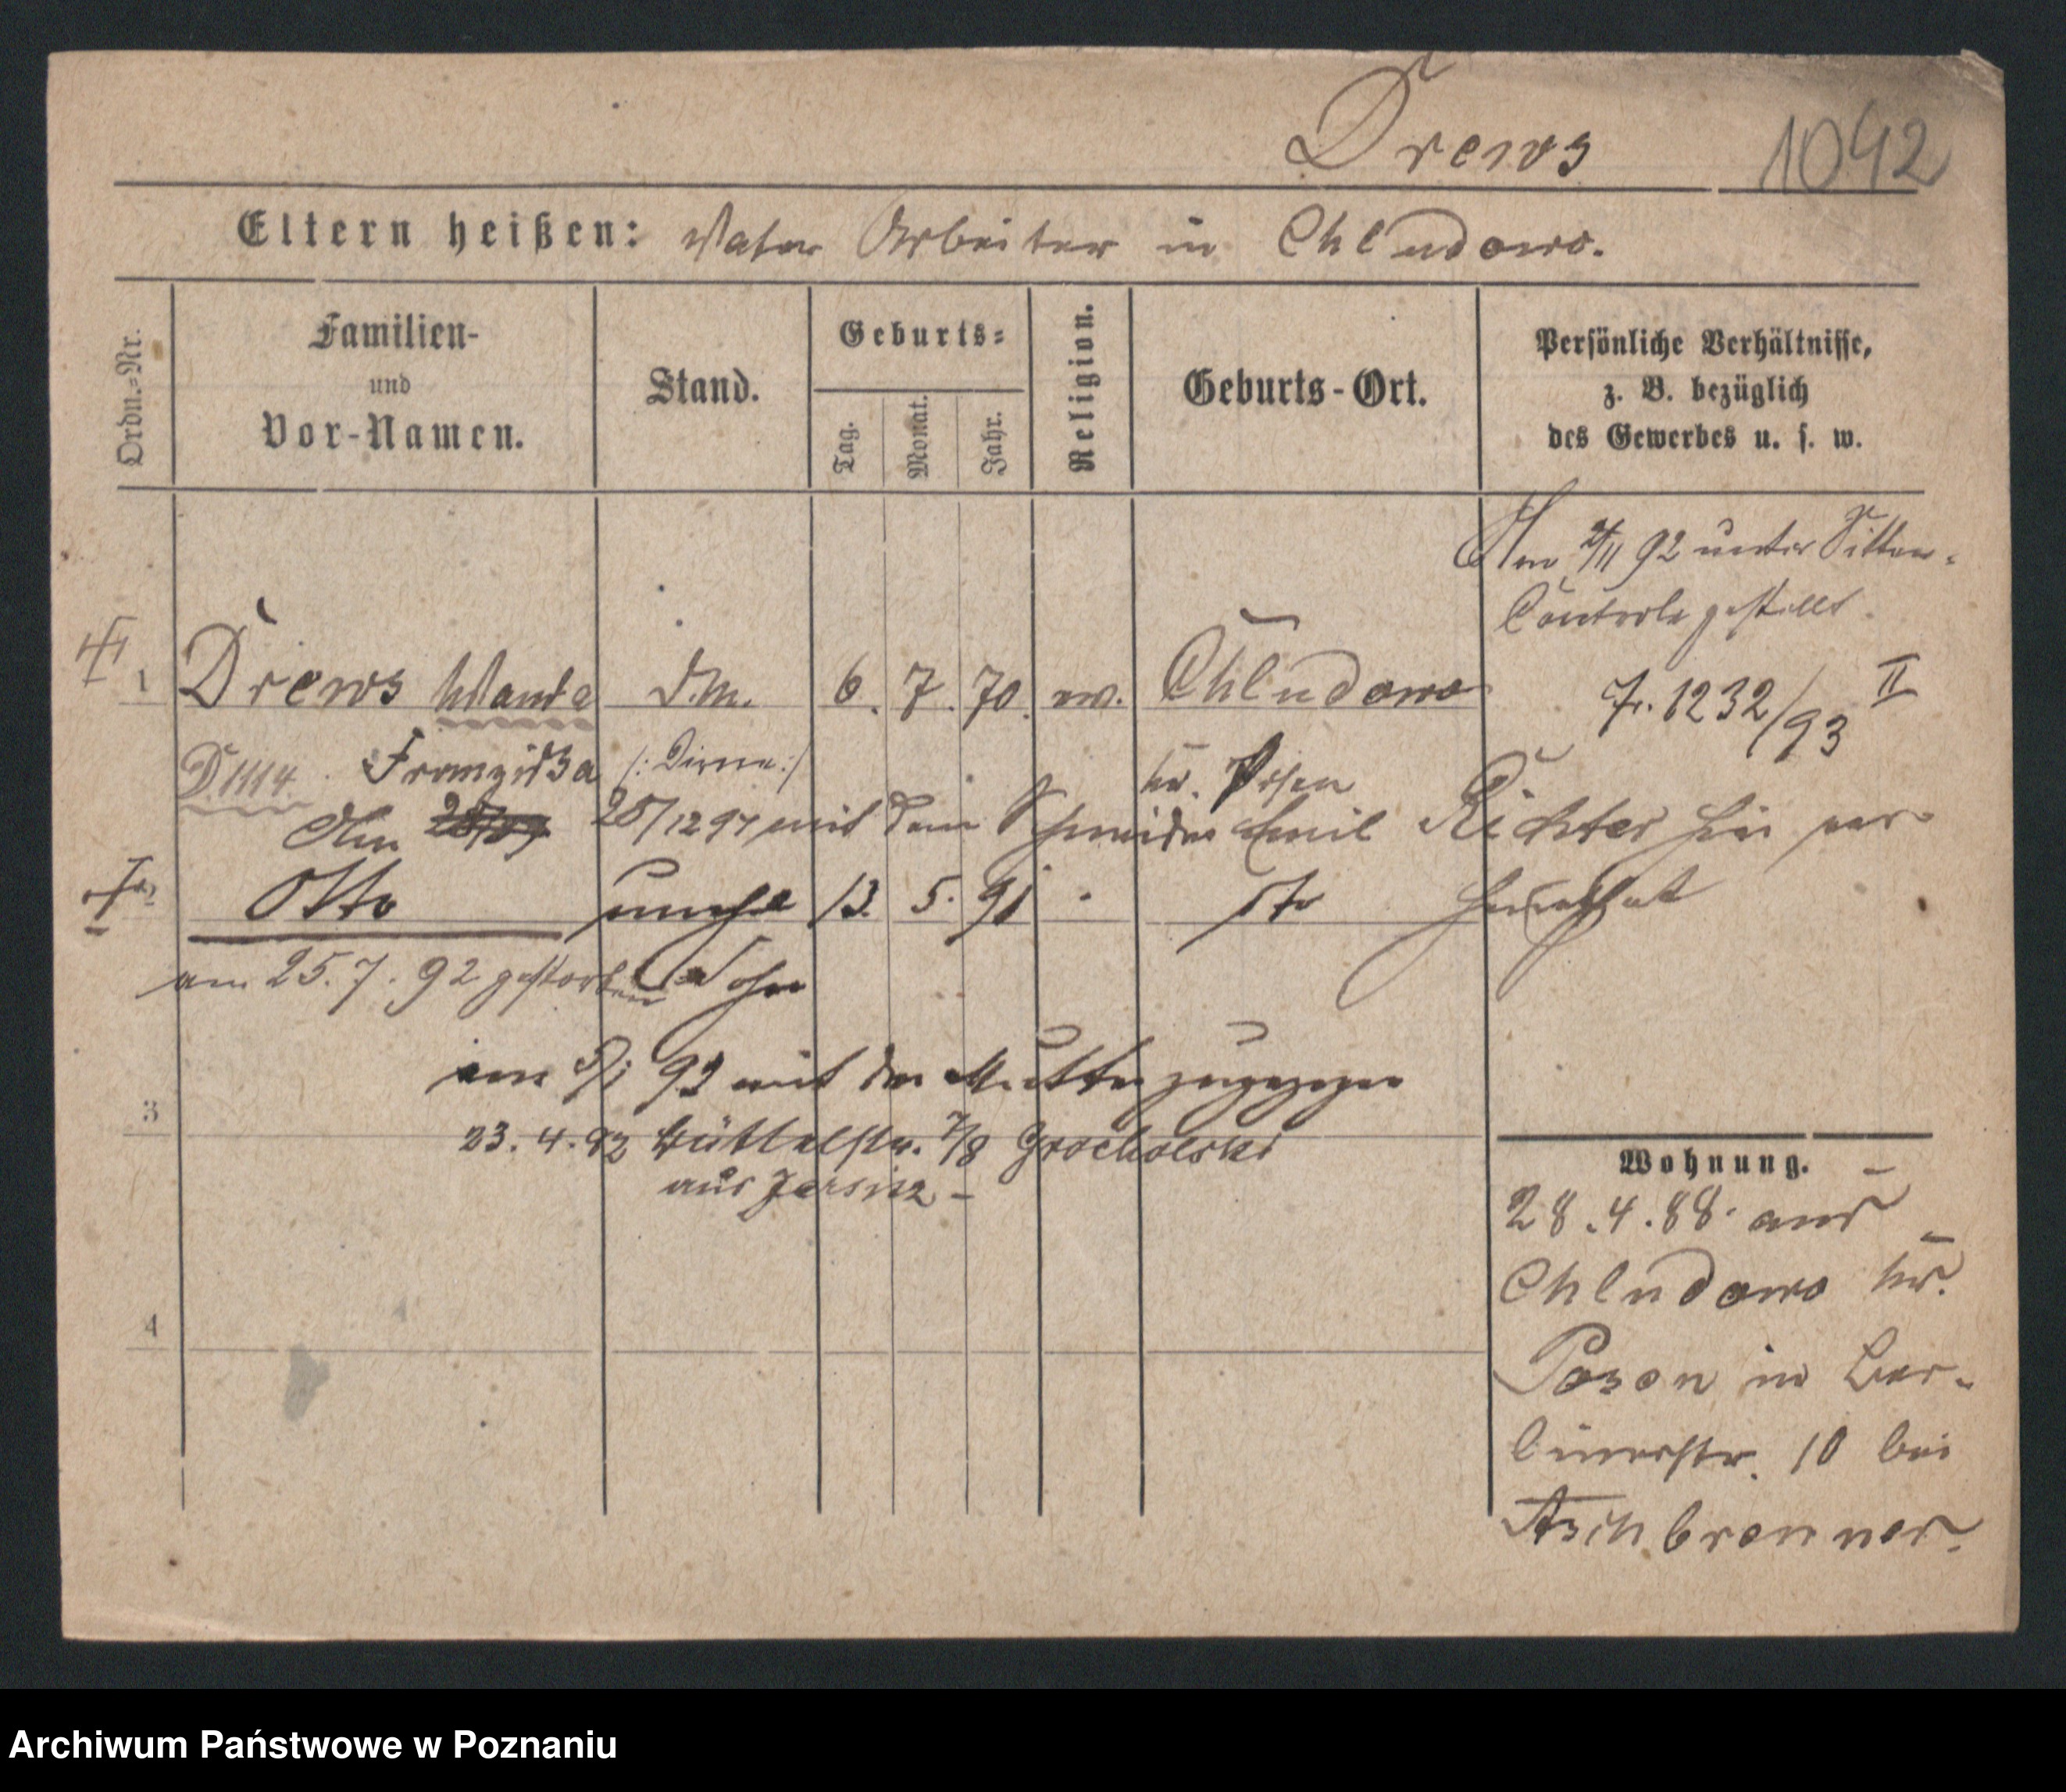 Drews 1092
Eltern heißen: Vater Arbeiter in Chludowo.
Ordn.=Nr.
Familien-
und
Vor-Namen.
Stand.
Geburts=
Tag.
Monat.
Jahr.
Religion.
Geburts-Ort.
Persönliche Verhältnisse,
z. B. bezüglich
des Gewerbes u. s. w.
Am 2/11 92 unter Sitten-
Controle gestellt.
1 Drews Wanda D.M. 6. 7. 70. ev. Chludowo
Fr. 1232/93 II
D1114 Franziska /: Dirne :/ Kr. Posen
Am 28/12 97 mit dem Schneider Emil Richter hier ver-
heirathet
Otto unehe 13. 5. 91 " Sohn
am 25.7.92 gestorben
am 5/1 92 mit der Mutter zugezogen
3
23.4.92 Büttelstr. 7/8 Grocholski
aus Jersitz -
4
Wohnung.
28.4.88. aus
Chludowo Kr.
Posen in Ber-
linerstr. 10 bei
Aschbronner.
Archiwum Państwowe w Poznaniu